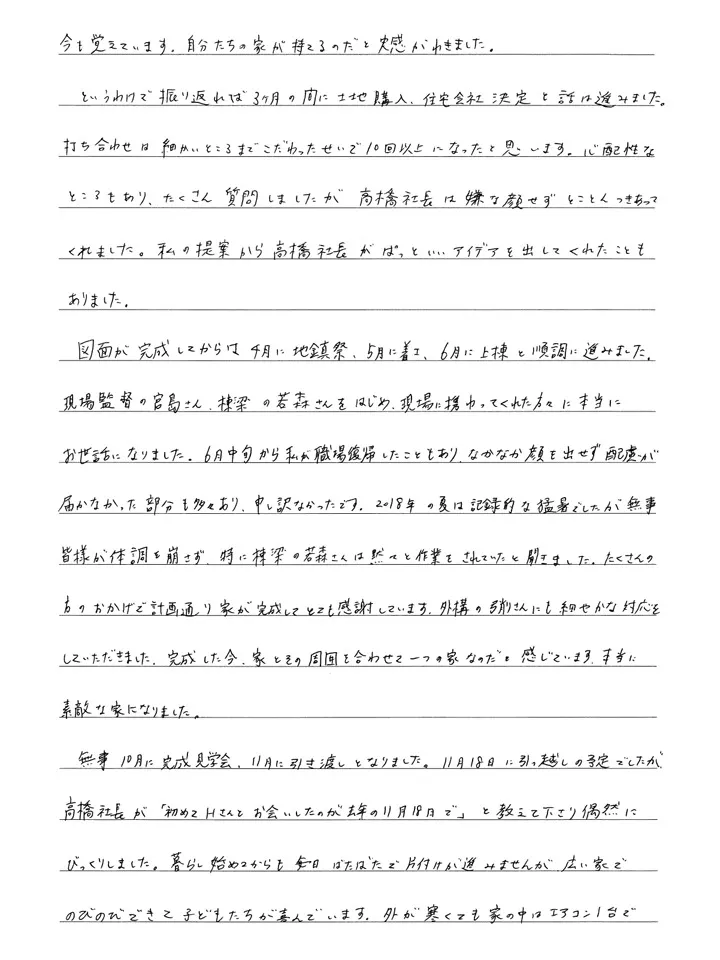 今も覚えています。自分たちの家が持てるのだと実感がわきました。
というわけで振り返れば3ヶ月の間に土地購入、住宅会社決定と話は進みました。
打ち合わせは細かいところまでこだわったせいで10回以上になったと思います。心配性な
ところもあり、たくさん質問しましたが高橋社長は嫌な顔せずとことんつきあって
くれました。私の提案から高橋社長がぱっといいアイデアを出してくれたことも
ありました。
図面が完成してからは4月に地鎮祭、5月に着工、6月に上棟と順調に進みました。
現場監督の宮島さん、棟梁の若森さんをはじめ、現場に携わってくれた方々に本当に
お世話になりました。6月中旬から私が職場復帰したこともあり、なかなか顔を出せず配慮が
届かなかった部分も多々あり、申し訳なかったです。2018年の夏は記録的な猛暑でしたが無事
皆様が体調を崩さず、特に棟梁の若森さんは黙々と作業をされていたと聞きました。たくさんの
方のおかげで計画通り家が完成してとても感謝しています。外構の弓削さんにも細やかな対応を
していただきました。完成した今、家とその周囲を合わせて一つの家なのだと感じています。本当に
素敵な家になりました。
無事10月に完成見学会、11月に引き渡しとなりました。11月18日に引っ越しの予定でしたが
高橋社長が「初めてHさんとお会いしたのが去年の11月18日で」と教えて下さり偶然に
びっくりしました。暮らし始めてからも毎日ばたばたで片付けが進みませんが、広い家で
のびのびできて子どもたちが喜んでいます。外が寒くても家の中はエアコン1台で